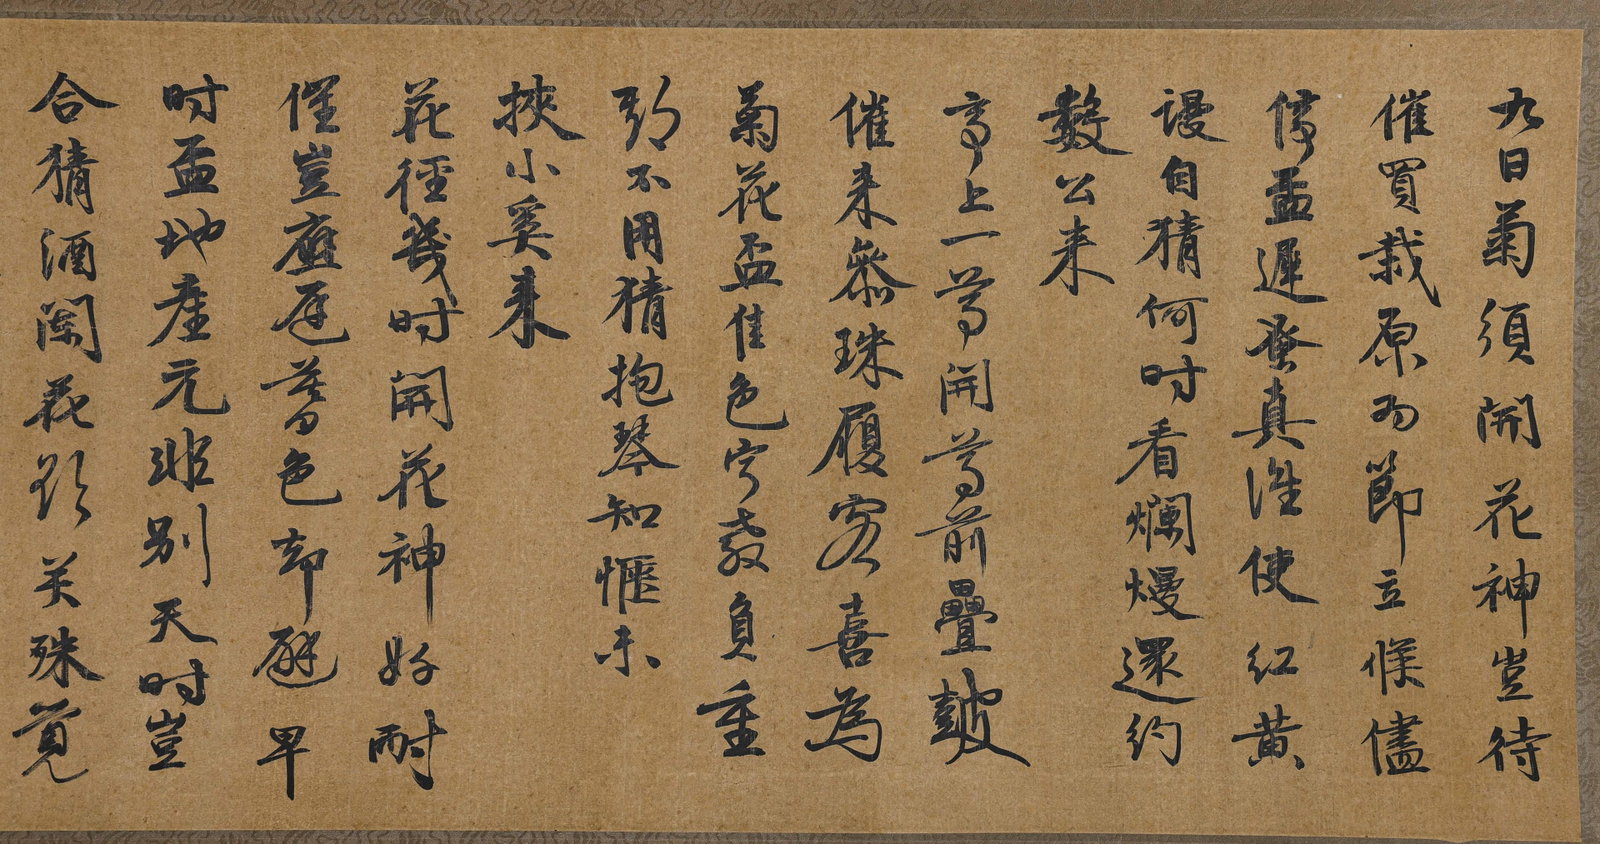 九日菊須開花神豈待
催買栽原為節立候儘
傳盃遲蚤真誰使紅黃
謾自猜何時看爛熳還約
數公來
亭上一尊開尊前疊皷
催來參珠履客喜為
菊花盃佳色寧教負重
郭不用猜抱琴知愜未
挾小奚來
花徑幾時開花神好耐
催豈應遲暮色却避早
時盃地產元非別天時豈
合猜酒闌花欲笑殊覺